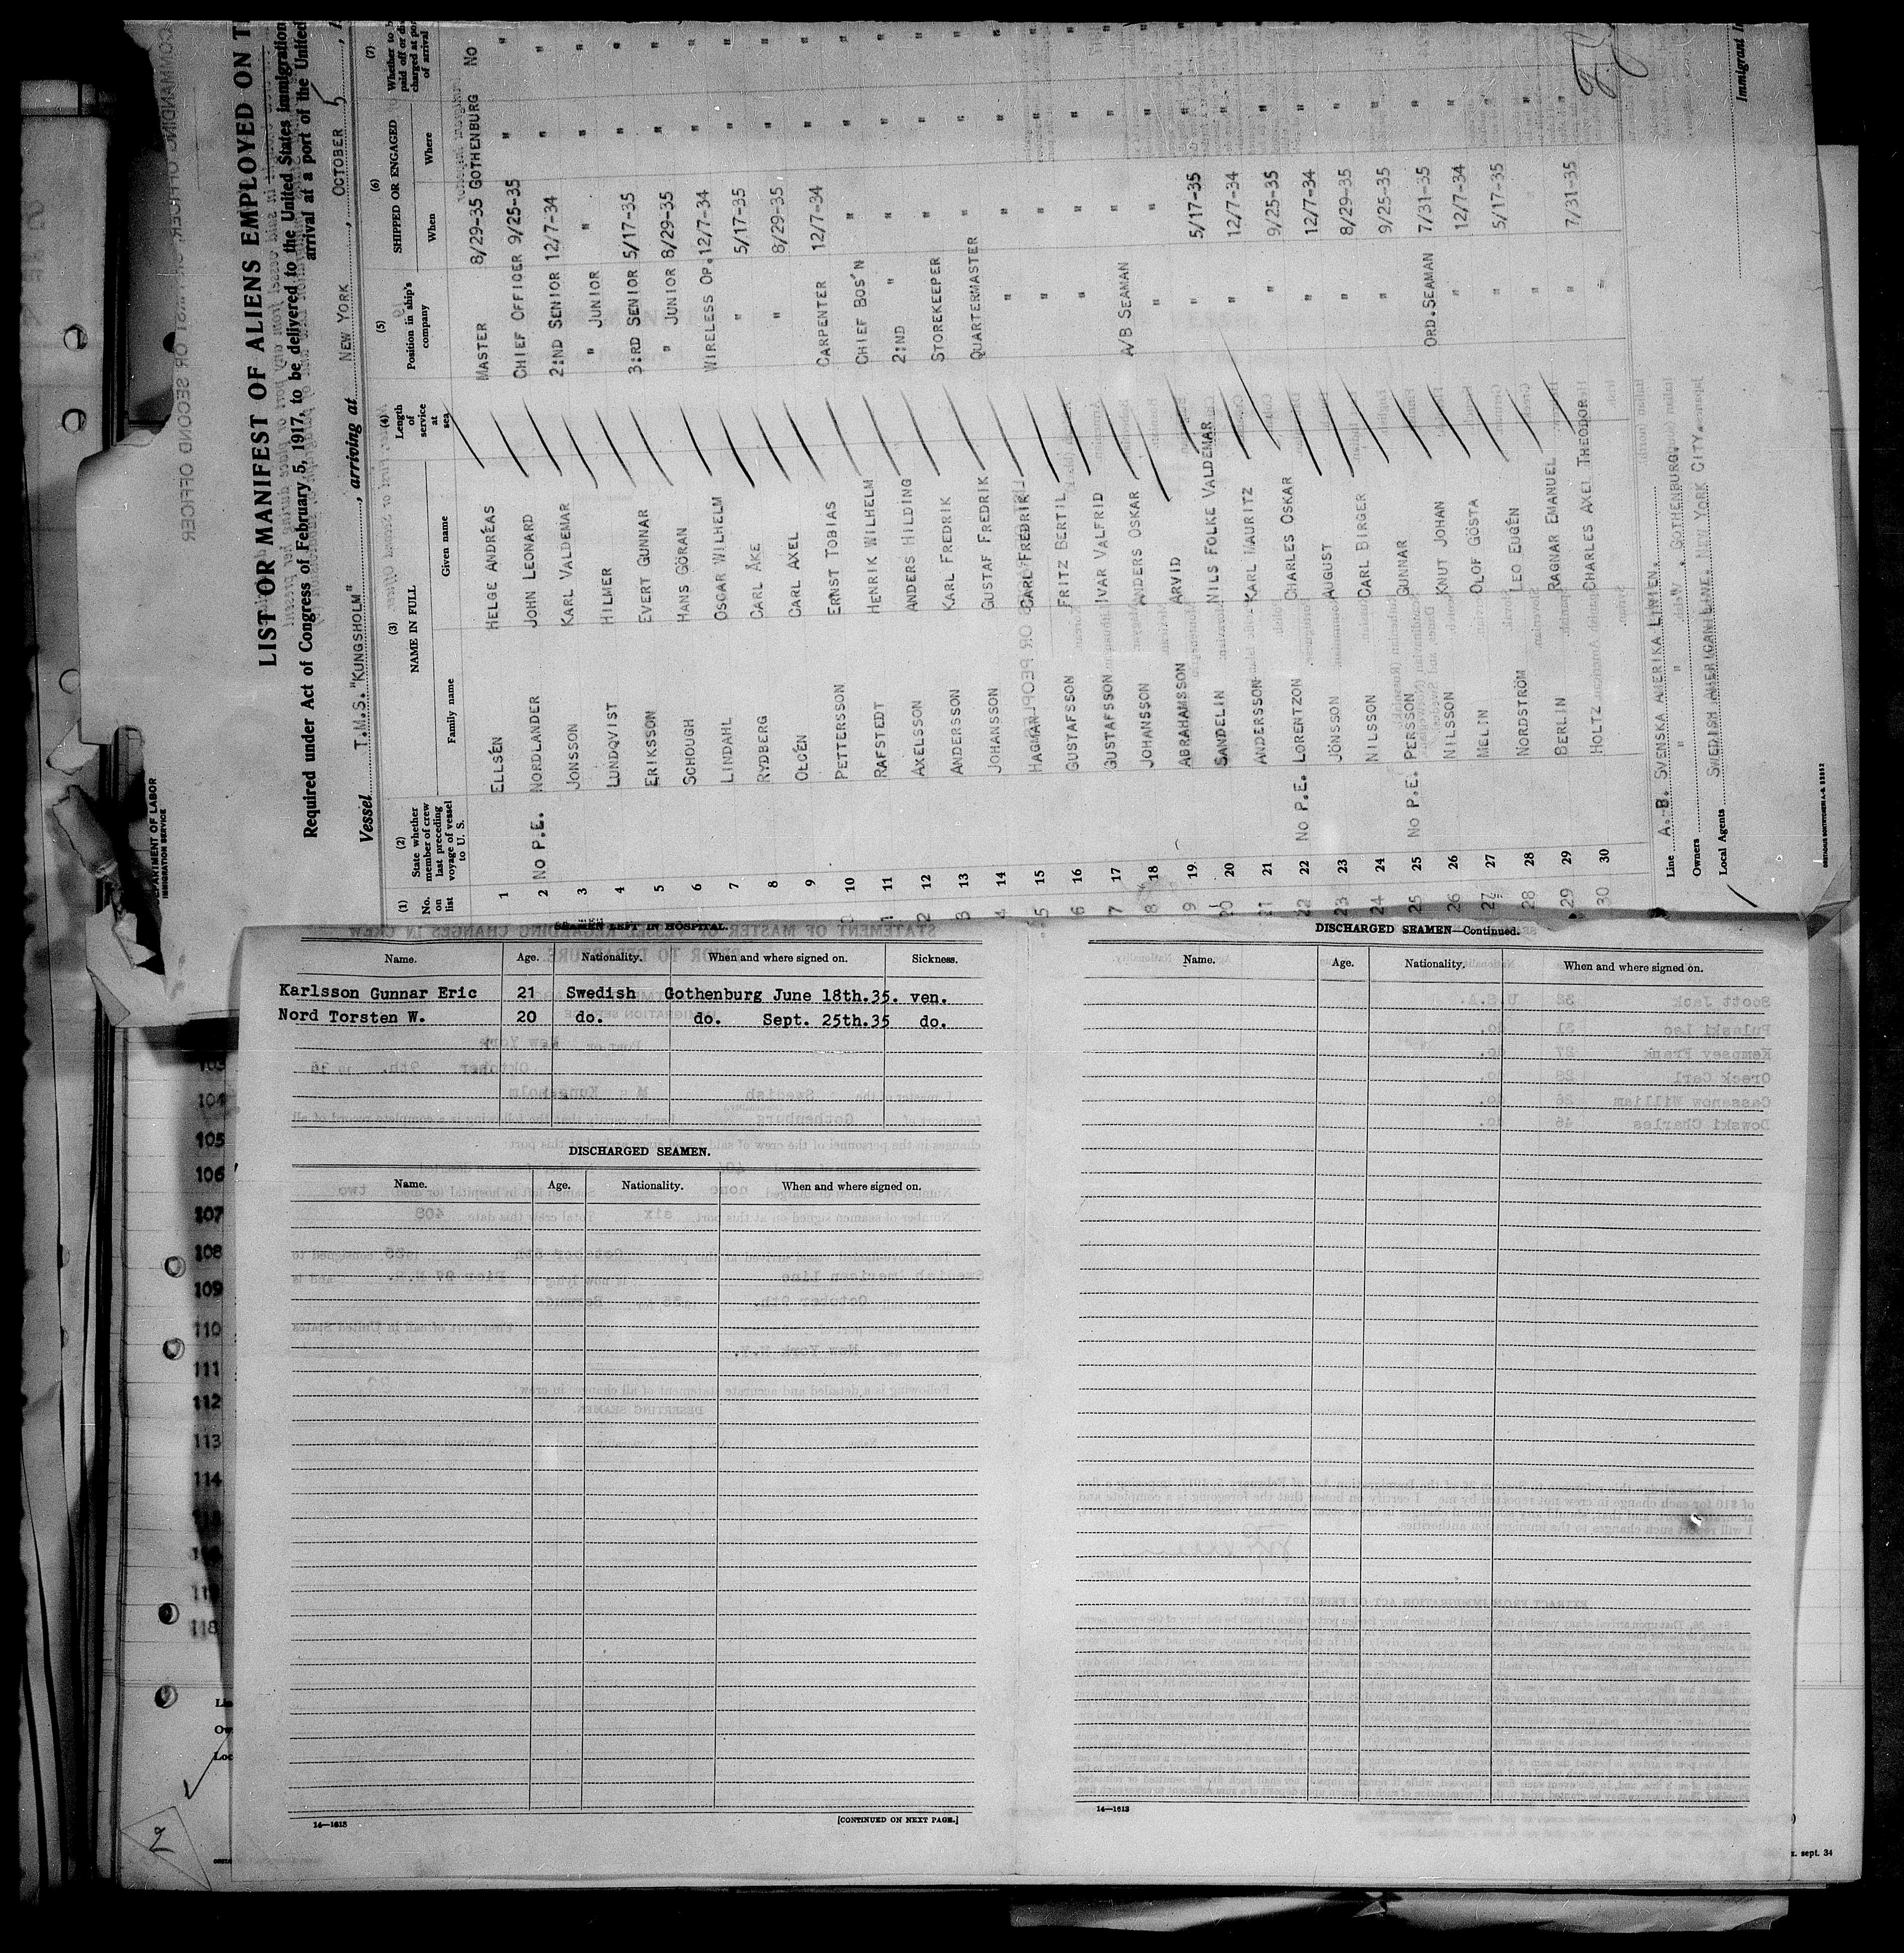 LIST OR MANIFEST OF ALIENS EMPLOYED ON T
Required under Act of Congress of February 5, 1917, to be delivered to the United States immigration
arrival at a port of the United
Vessel T.M.S. "KUNGSHOLM", arriving at NEW YORK, OCTOBER 5
DEPARTMENT OF LABOR
IMMIGRATION SERVICE
(1) No. on list
(2) State whether member of crew last preceding voyage of vessel to U. S.
(3) NAME IN FULL
Family name Given name
(4) Length of service at sea
(5) Position in ship's company
(6) SHIPPED OR ENGAGED
When Where
(7) Whether to b paid off or di charged at por of arrival
1 ELLSÉN HELGE ANDRÉAS MASTER 8/29-35 GOTHENBURG NO
2 NO P.E. NORDLANDER JOHN LEONARD CHIEF OFFICER 9/25-35 " "
3 JONSSON KARL VALDEMAR 2:ND SENIOR 12/7-34 " "
4 LUNDQVIST HILMER " JUNIOR " " "
5 ERIKSSON EVERT GUNNAR 3:RD SENIOR 5/17-35 " "
6 SCHOUGH HANS GÖRAN " JUNIOR 8/29-35 " "
7 LINDAHL OSCAR WILHELM WIRELESS OP. 12/7-34 " "
8 RYDBERG CARL ÅKE " 5/17-35 " "
9 OLÉEN CARL AXEL " 8/29-35 " "
10 PETTERSSON ERNST TOBIAS CARPENTER 12/7-34 " "
11 RAFSTEDT HENRIK WILHELM CHIEF BOS'N " " "
12 AXELSSON ANDERS HILDING 2:ND " " " "
13 ANDERSSON KARL FREDRIK STOREKEEPER " " "
14 JOHANSSON GUSTAF FREDRIK QUARTERMASTER " " "
15 HAGMAN CARL FREDRIK " " " "
16 GUSTAFSSON FRITZ BERTIL " " " "
17 GUSTAFSSON IVAR VALFRID " " " "
18 JOHANSSON ANDERS OSKAR A/B SEAMAN " " "
19 ABRAHAMSSON ARVID " " " "
20 SANDELIN NILS FOLKE VALDEMAR " 5/17-35 " "
21 ANDERSSON KARL MAURITZ " 12/7-34 " "
22 NO P.E. LORENTZON CHARLES OSKAR " 9/25-35 " "
23 JÖNSSON AUGUST " 12/7-34 " "
24 NILSSON CARL BIRGER " 8/29-35 " "
25 NO P.E. PERSSON GUNNAR " 9/25-35 " "
26 NILSSON KNUT JOHAN ORD.SEAMAN 7/31-35 " "
27 MELIN OLOF GÖSTA " 12/7-34 " "
28 NORDSTRÖM LEO EUGÉN " 5/17-35 " "
29 BERLIN RAGNAR EMANUEL " " " "
30 HOLTZ CHARLES AXEL THEODOR " 7/31-35 " "
Line A.-B. SVENSKA AMERIKA LINIEN.
Owners " " " , GOTHENBURG.
Local Agents SWEDISH AMERICAN LINE. NEW YORK CITY.
Immigrant I
SEAMEN LEFT IN HOSPITAL.
Name. Age. Nationality. When and where signed on. Sickness.
Karlsson Gunnar Eric 21 Swedish Gothenburg June 18th.35. ven.
Nord Torsten W. 20 do. do. Sept. 25th.35 do.
DISCHARGED SEAMEN.
Name. Age. Nationality. When and where signed on.
14—1613
[CONTINUED ON NEXT PAGE.]
DISCHARGED SEAMEN—Continued.
Name. Age. Nationality. When and where signed on.
14—1613
103
104
105
106
107
108
109
110
111
112
113
114
118
Ow
Loc
2
sept. 34